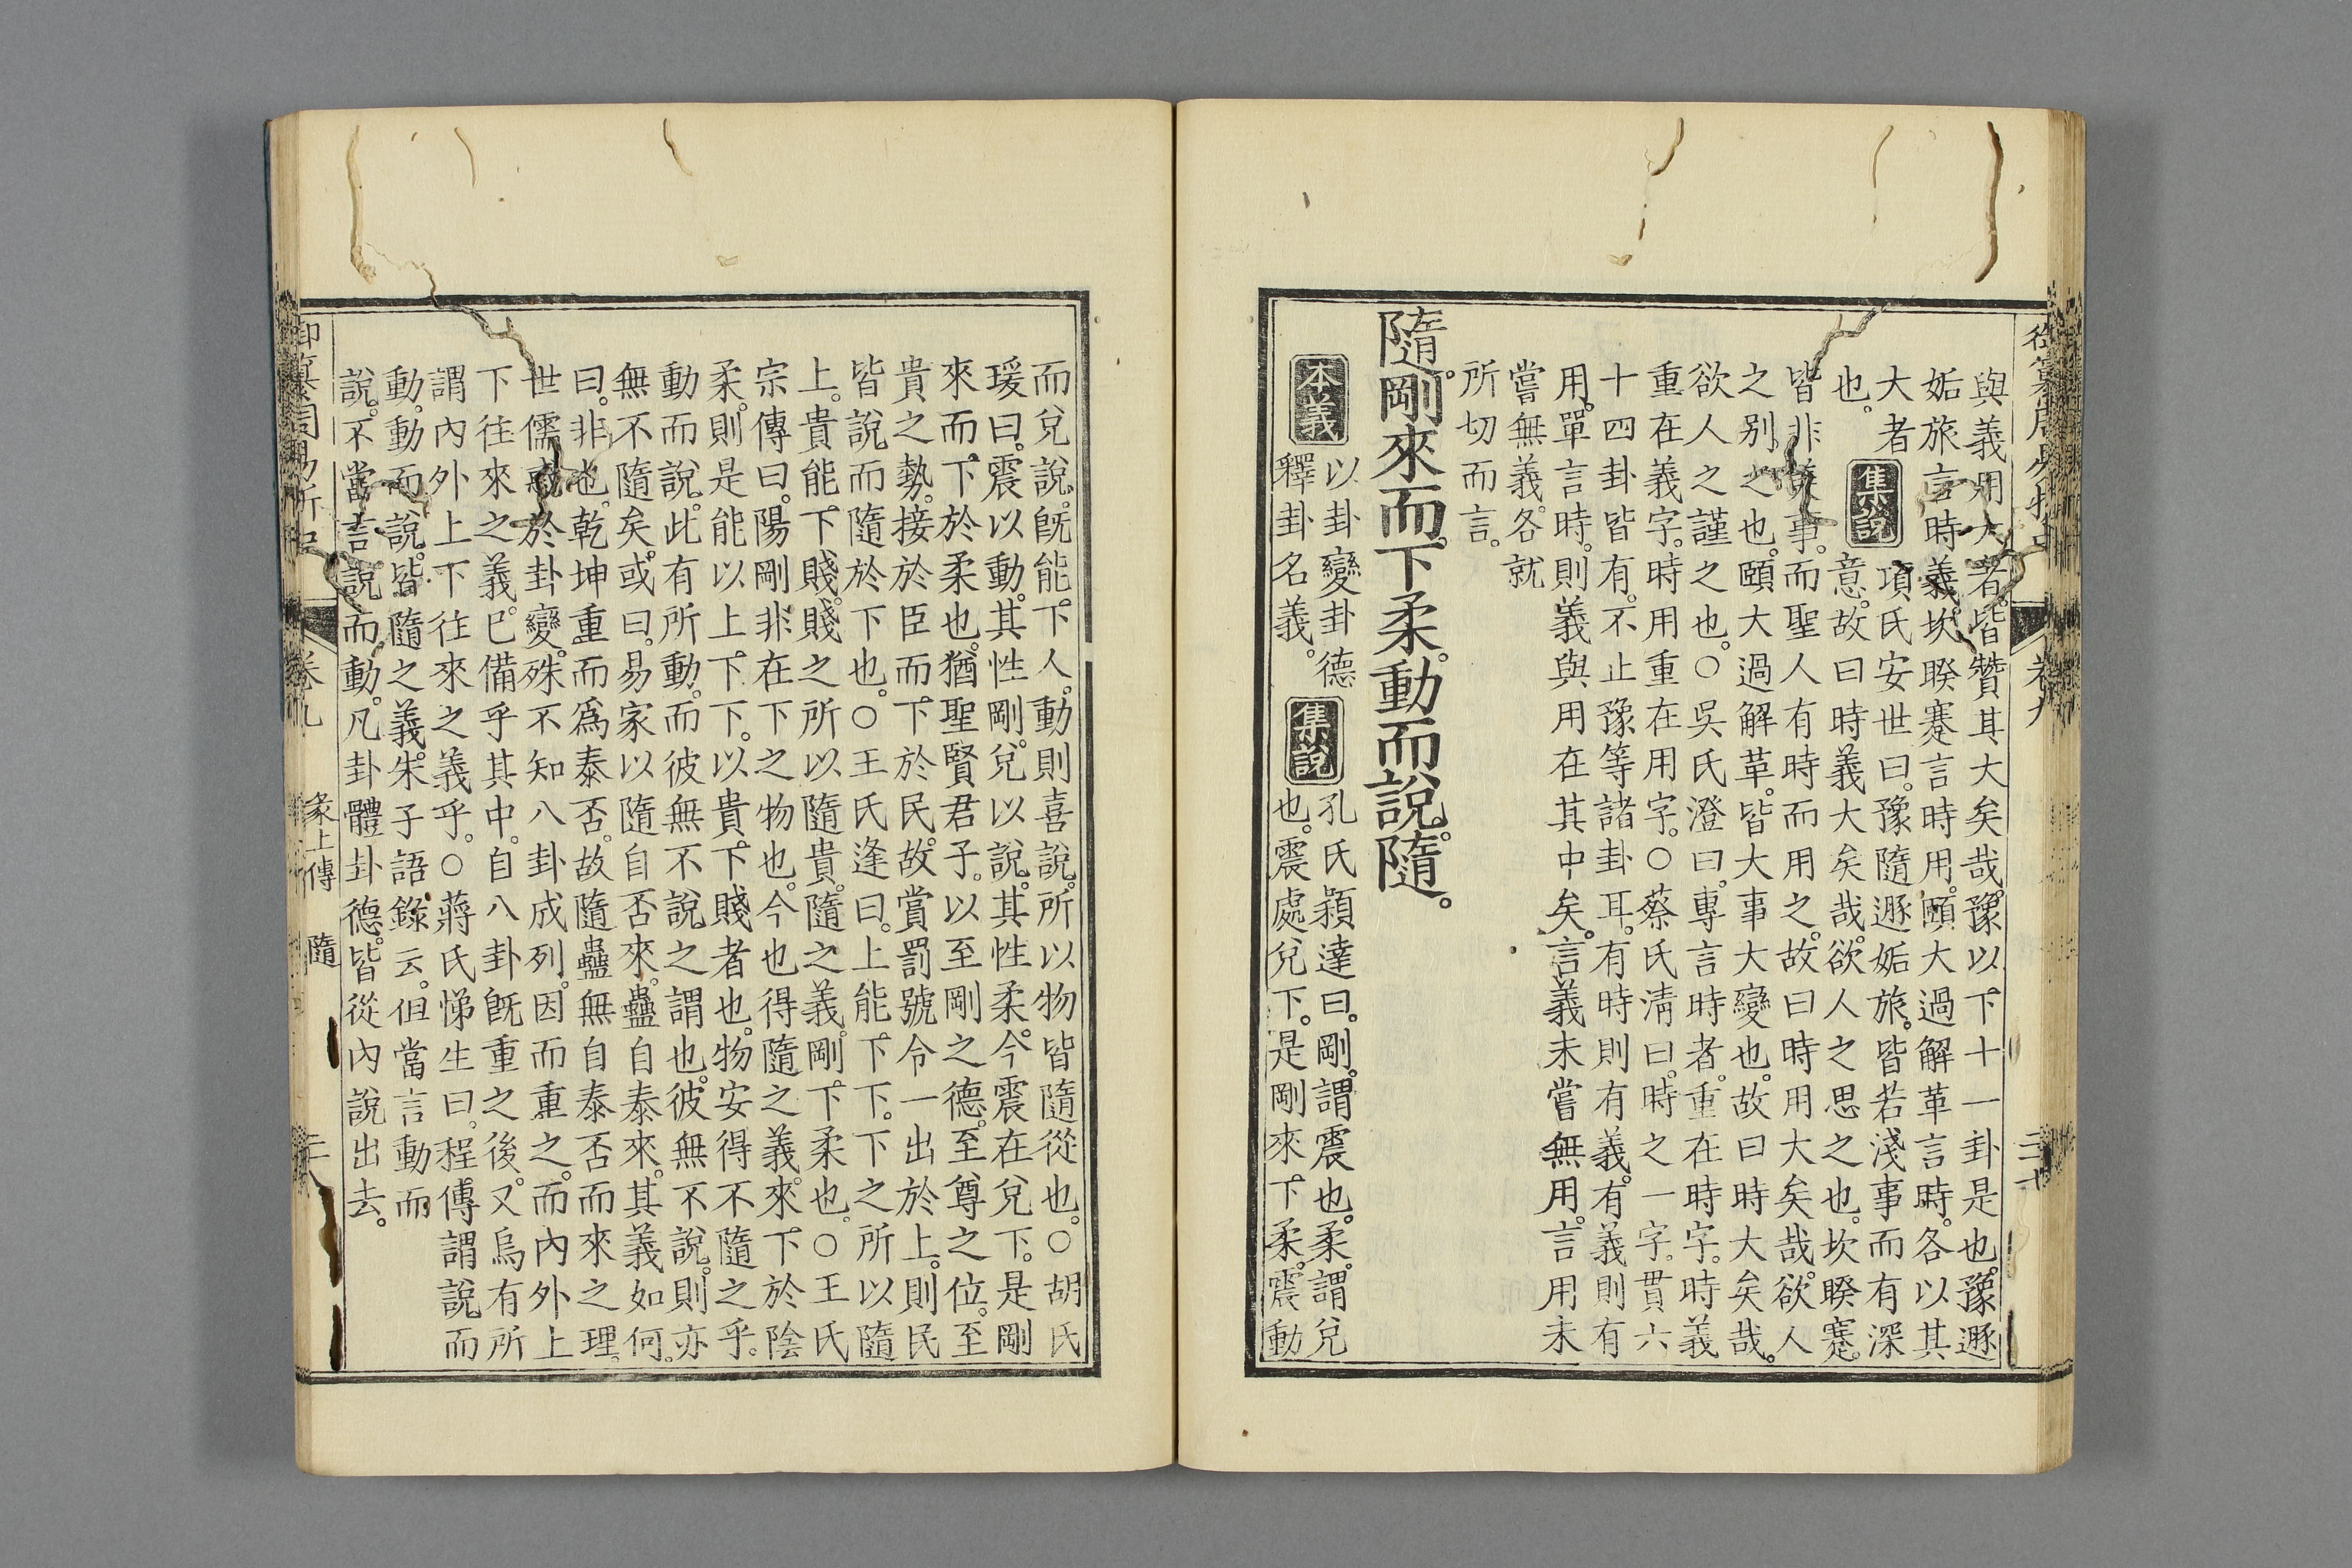 與義用大者。皆贊其大矣哉。豫以下十一卦是也。豫遯
姤旅言時義。坎睽蹇言時用。頤大過解革言時。各以其
大者
也。
集說
項氏安世曰。豫隨遯姤旅。皆若淺事而有深
意。故曰時義大矣哉。欲人之思之也。坎睽蹇。
皆非美事。而聖人有時而用之。故曰時用大矣哉。欲人
之别之也。頤大過解革。皆大事大變也。故曰時大矣哉。
欲人之謹之也。○吳氏澄曰。專言時者。重在時字。時義
重在義字。時用重在用字。○蔡氏清曰。時之一字。貫六
十四卦皆有。不止豫等諸卦耳。有時則有義。有義則有
用。單言時。則義與用在其中矣。言義未嘗無用。言用未
嘗無義。各就
所切而言。
隨。剛來而下柔。動而說。隨。
本義
以卦變卦德
釋卦名義。
集說
孔氏穎達曰。剛。謂震也。柔。謂兌
也。震處兌下。是剛來下柔。震動
卷九
而兌說。旣能下人。動則喜說。所以物皆隨從也。○胡氏
瑗曰。震以動。其性剛。兌以說。其性柔。今震在兌下。是剛
來而下於柔也。猶聖賢君子。以至剛之德。至尊之位。至
貴之勢。接於臣而下於民。故賞罰號令一出於上。則民
皆說而隨於下也。○王氏逢曰。上能下下。下之所以隨
上。貴能下賤。賤之所以隨貴。隨之義。剛下柔也。○王氏
宗傳曰。陽剛非在下之物也。今也得隨之義。來下於陰
柔。則是能以上下下。以貴下賤者也。物安得不隨之乎。
動而說。此有所動。而彼無不說之謂也。彼無不說。則亦
無不隨矣。或曰。易家以隨自否來。蠱自泰來。其義如何。
曰。非也。乾坤重而爲泰否。故隨蠱無自泰否而來之理。
世儒惑於卦變。殊不知八卦成列。因而重之。而內外上
下往來之義。已備乎其中。自八卦旣重之後。又烏有所
謂內外上下往來之義乎。○蔣氏悌生曰。程傳謂說而
動。動而說。皆隨之義。朱子語錄云。但當言動而
說。不當言說而動。凡卦體卦德。皆從內說出去。
御纂周易折中
卷九
彖上傳
隨